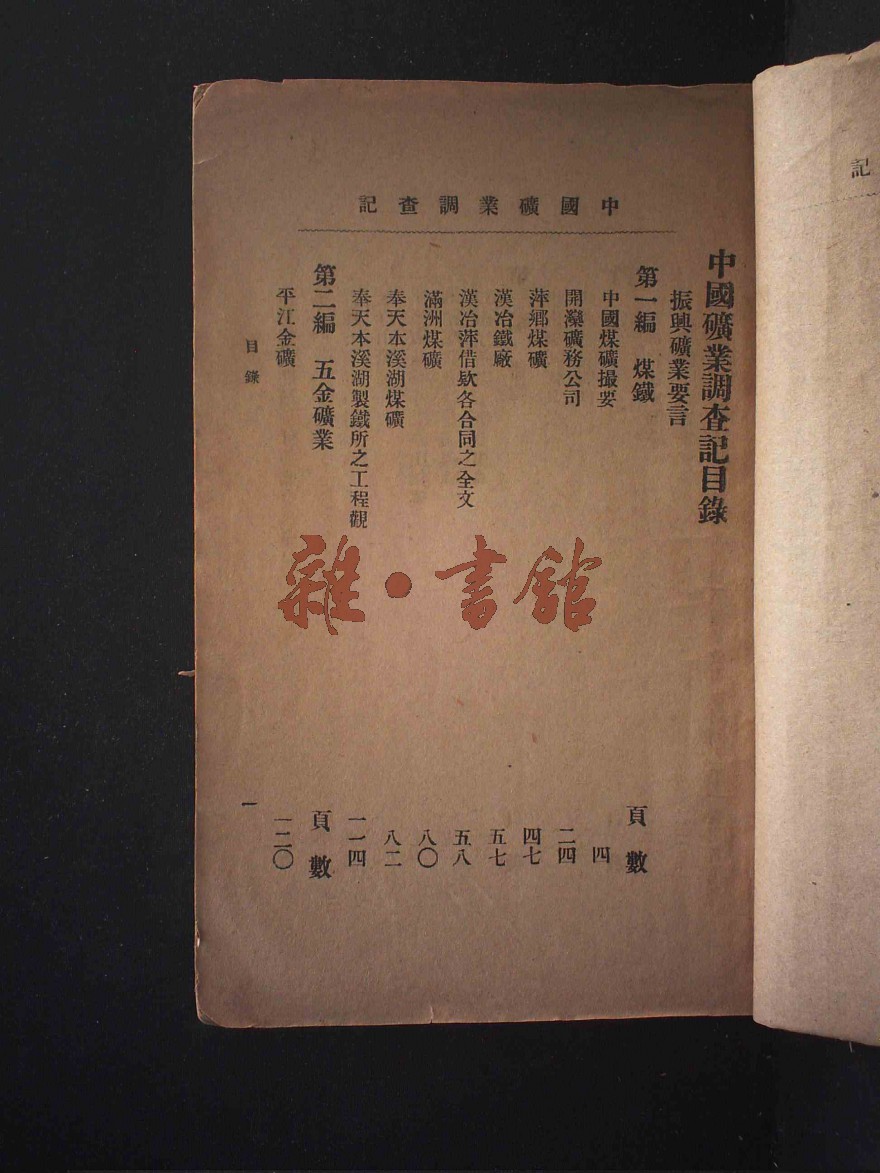 中國礦業調查記
中國礦業調查記目錄
振興礦業要言
第一編 煤鐵 頁數
中國煤礦撮要 四
開灤礦務公司 二四
萍鄉煤礦 四七
漢冶鐵廠 五七
漢冶萍借欵各合同之全文 五八
滿洲煤礦 八〇
奉天本溪湖煤礦 八二
奉天本溪湖製鐵所之工程觀 一一四
第二編 五金礦業 頁數
平江金礦 一二〇
目錄 一
雜·書館
記